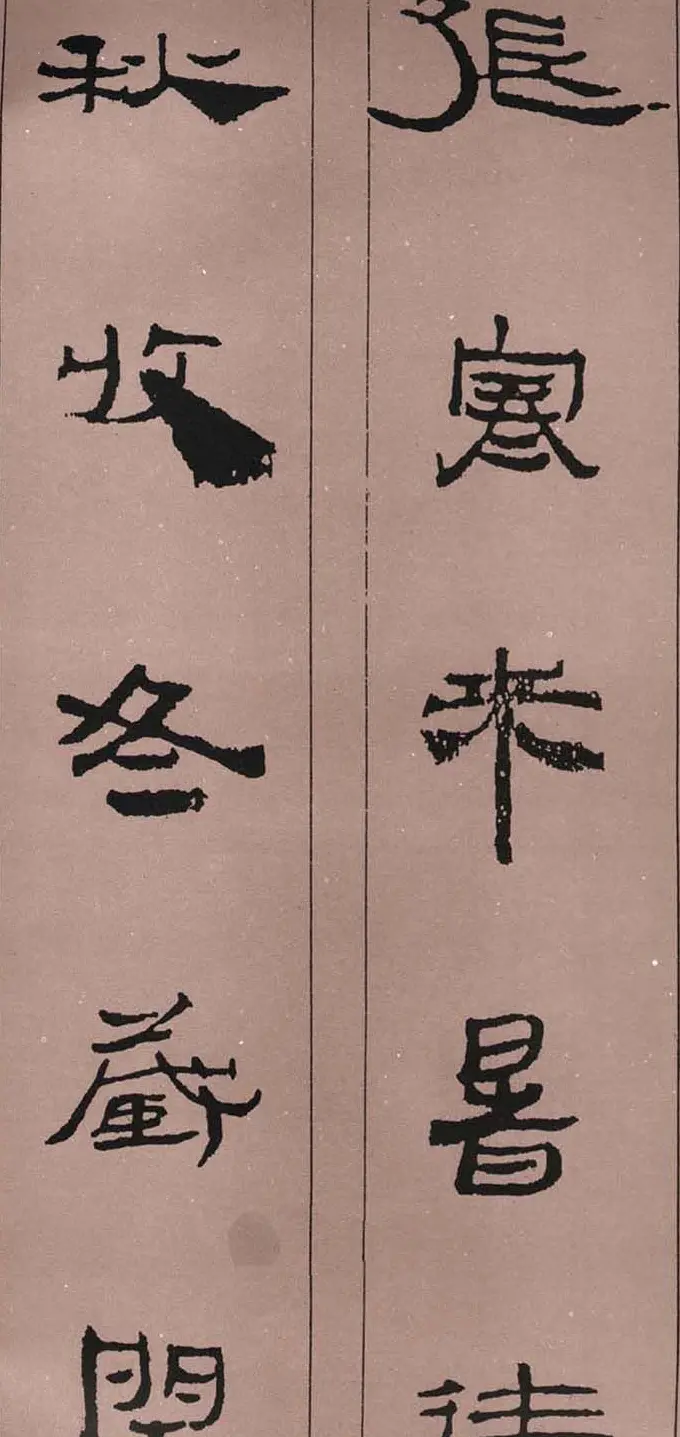 張寒來暑往
秋收冬藏閏